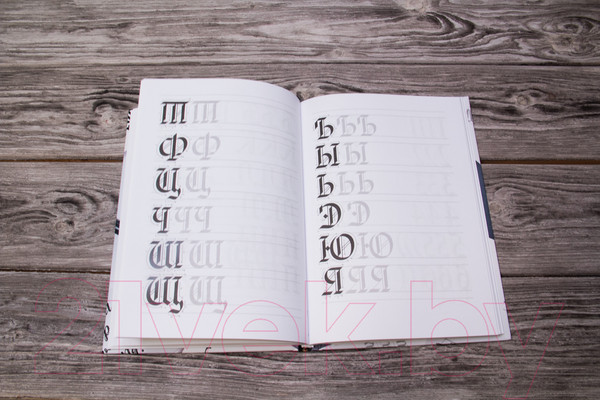 Т Т
Ф Ф
Ц Ц
Ч Ч Ч
Ш Ш
Щ Щ
Ъ Ъ Ъ
Ы Ы
Ь Ь Ь
Э Э
Ю Ю
Я Я Я
21vek.by